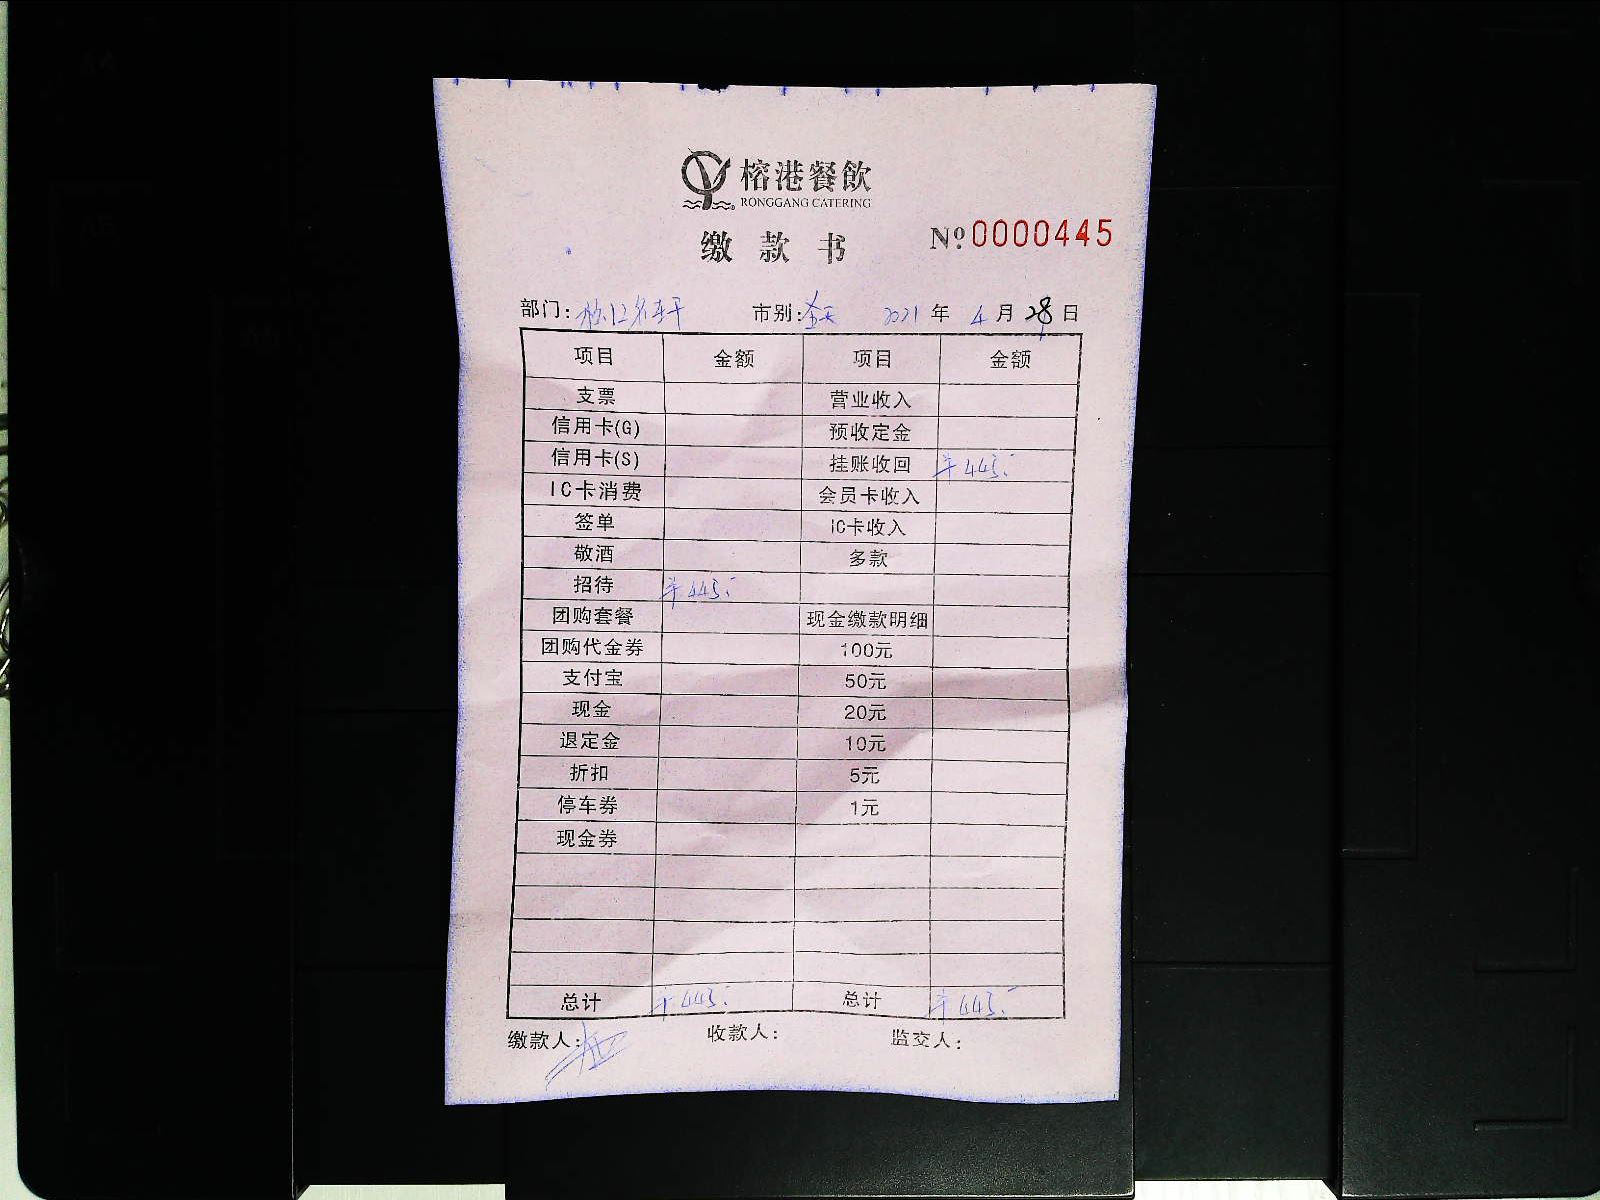 榕港餐飲
RONGGANG CATERING
缴款书 Nº 0000445
部门: 市别: 全天 2021 年 4 月 28 日
项目 金额 项目 金额
支票 营业收入
信用卡(G) 预收定金
信用卡(S) 挂账收回 ¥445.-
IC卡消费 会员卡收入
签单 IC卡收入
敬酒 多款
招待 ¥445.-
团购套餐 现金缴款明细
团购代金券 100元
支付宝 50元
现金 20元
退定金 10元
折扣 5元
停车券 1元
现金券
总计 ¥445.- 总计 ¥445.-
缴款人: 收款人: 监交人: